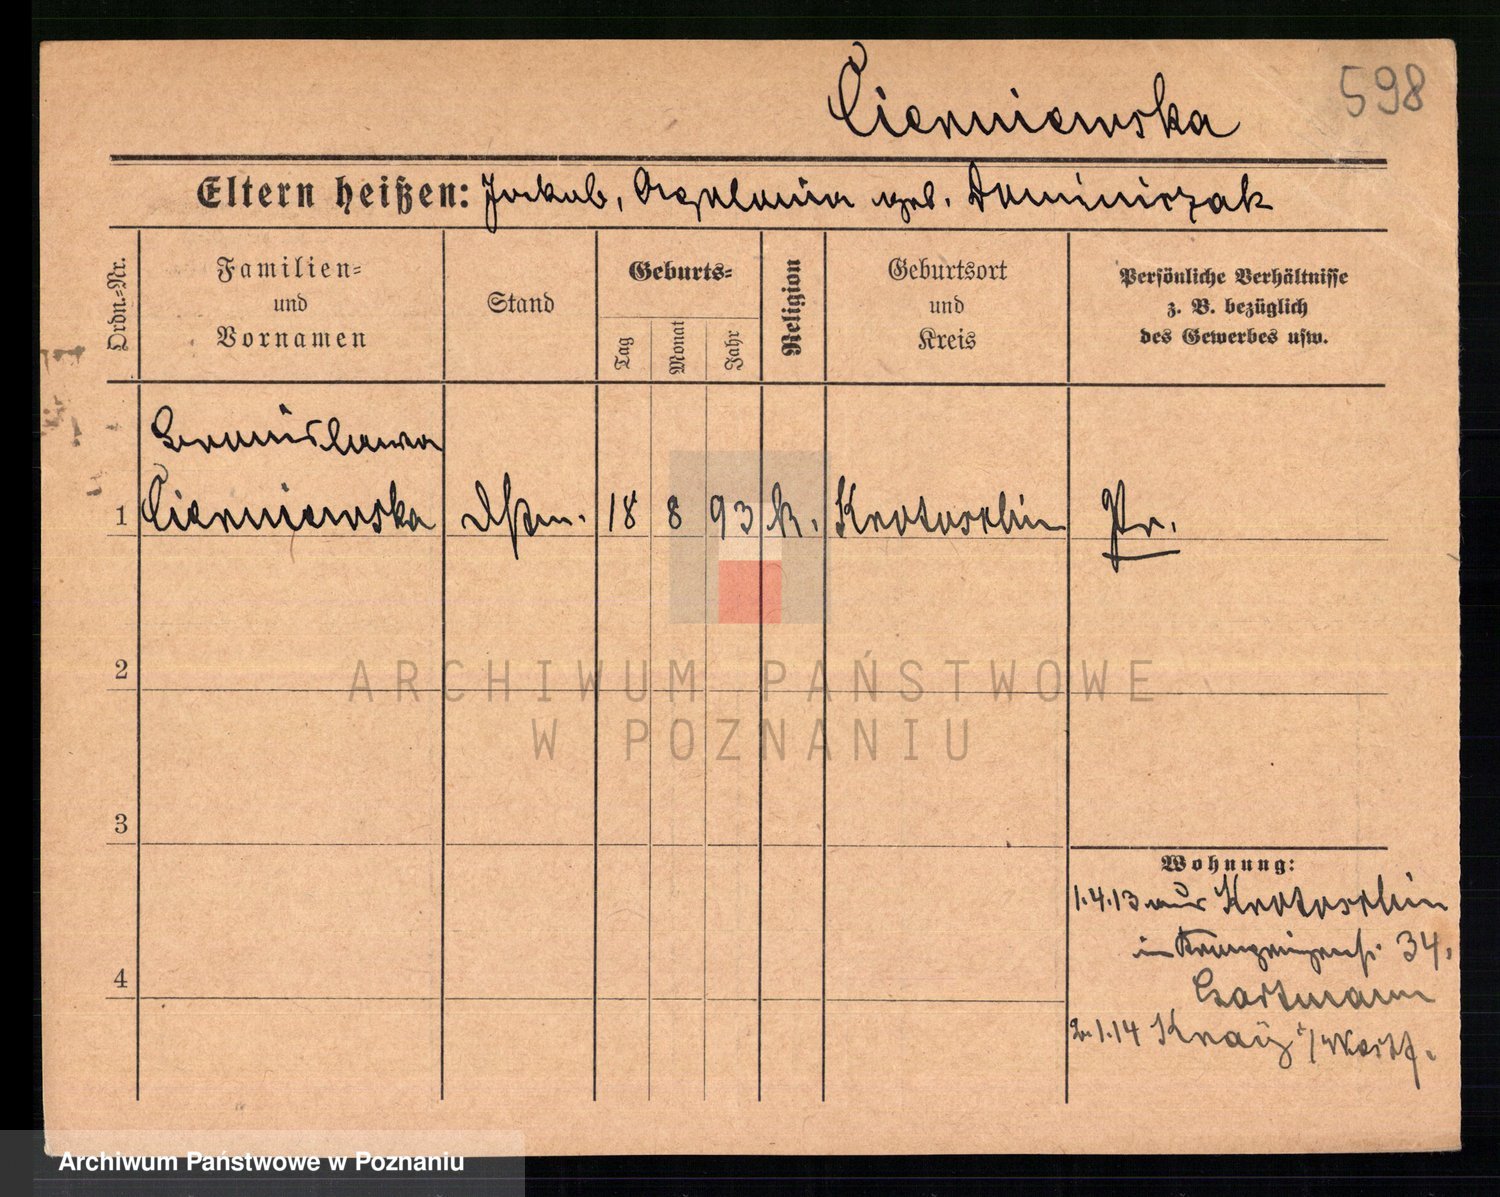 598
Cierniewska
Eltern heißen: Jakob, Apolonia geb. Dominiczak
Ordn.-Nr.
Familien-
und
Vornamen
Stand
Geburts-
Tag
Monat
Jahr
Religion
Geburtsort
und
Kreis
Persönliche Verhältnisse
z. B. bezüglich
des Gewerbes usw.
Bronislawa
1 Cierniewska 18 8 93 k. Krotoschin Pr.
2
3
4
Wohnung:
1.4.13 aus Krotoschin
in 34.
Bartmann
2.1.14 i/Westf.
ARCHIWUM PAŃSTWOWE
W POZNANIU
Archiwum Państwowe w Poznaniu